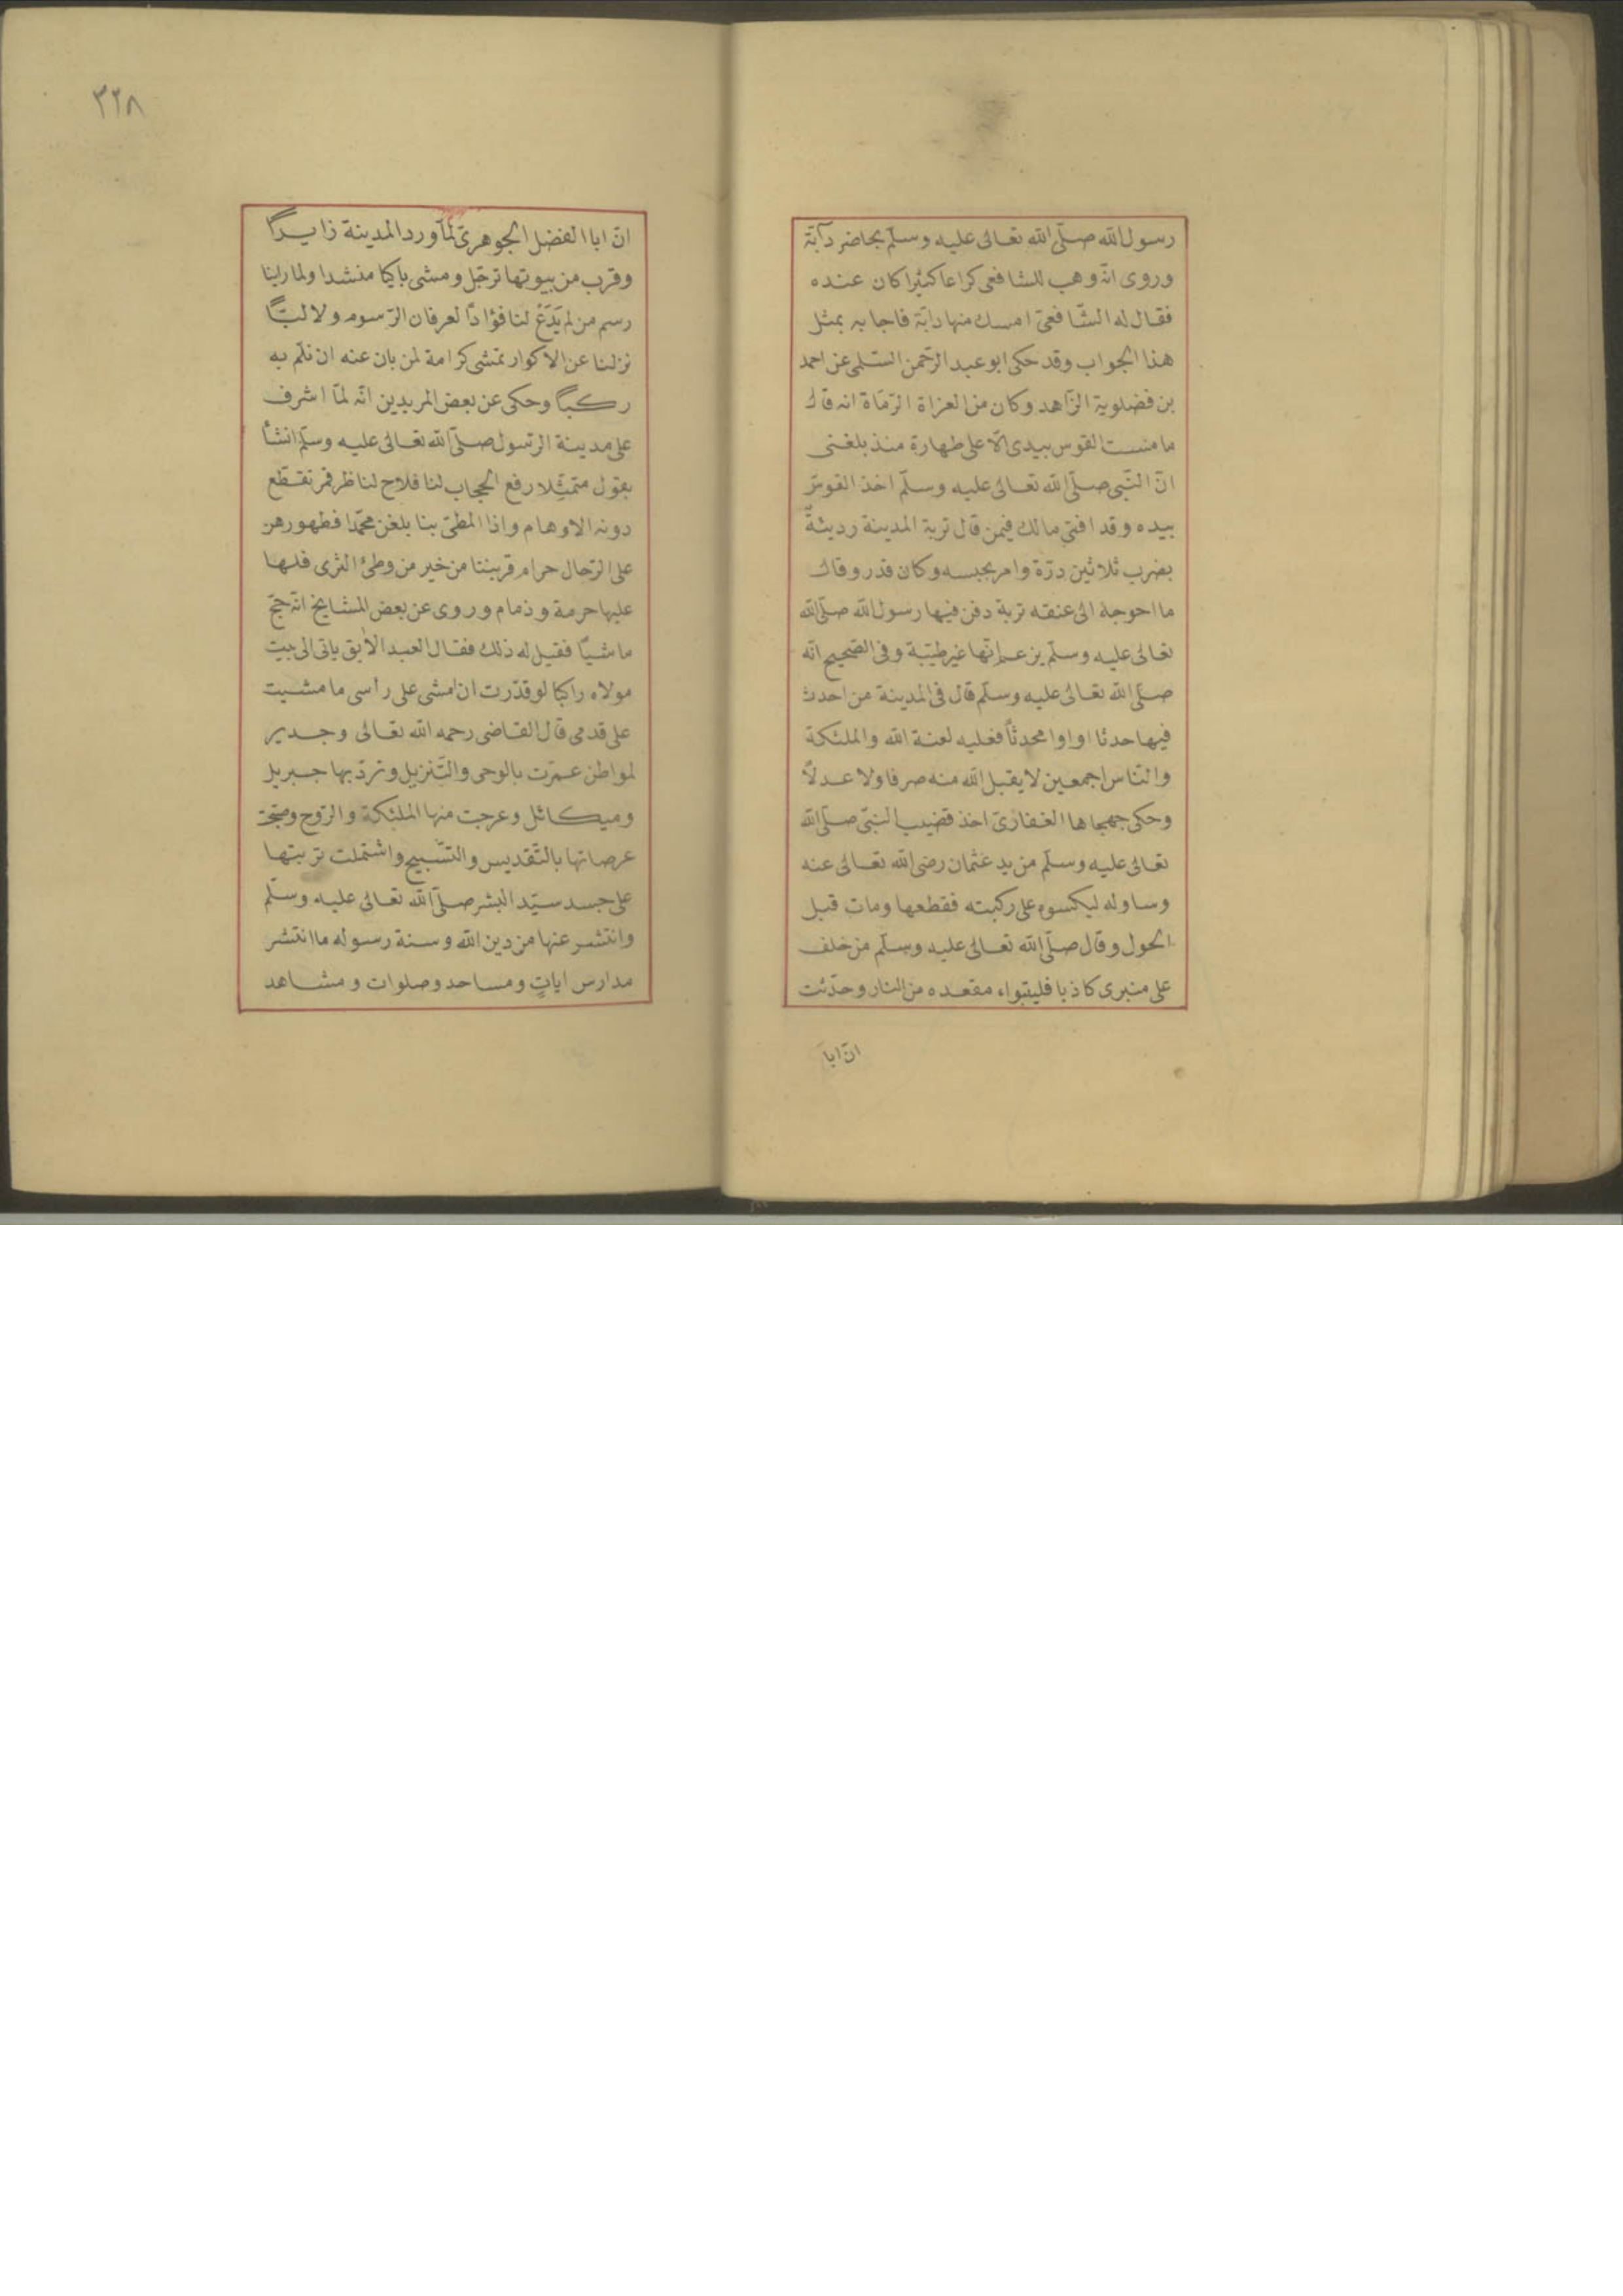 رسول الله صلّى الله تعالى عليه وسلّم بحاضر دآبّة
وروى انّه وهب للشافعى كراعا كثيرا كان عنده
فقال له الشّافعىّ امسك منها دابّة فاجابه بمثل
هذا الجواب وقد حكى ابو عبد الرّحمن السّلمى عن احمد
بن فضلوية الزّاهد وكان من الغزاة الرّماة انه قال
ما مسست القوس بيدى الّا على طهارة منذ بلغنى
انّ النّبى صلّى الله تعالى عليه وسلّم اخذ القوس
بيده وقد افتى مالك فيمن قال تربة المدينة رديئة
بضرب ثلاثين درّة وامر بحبسه وكان قدر وقال
ما احوجه الى عنقه تربة دفن فيها رسول الله صلّى الله
تعالى عليه وسلّم يزعم انّها غير طيّبة وفى الصّحيح انّه
صلّى الله تعالى عليه وسلّم قال فى المدينة من احدث
فيها حدثا او اوا محدثاً فعليه لعنة الله والملئكة
والنّاس اجمعين لا يقبل الله منه صرفا ولا عدلاً
وحكى جهجاها الغفارىّ اخذ قضيب النبىّ صلّى الله
تعالى عليه وسلّم من يد عثمان رضى الله تعالى عنه
وساوله ليكسوه على ركبته فقطعها ومات قبل
الحول وقال صلّى الله تعالى عليه وسلّم من خلف
على منبرى كاذبا فليتبواء مقعده من النار وحدّثت
انّ ابا
٣٢٨
انّ ابا الفضل الجوهرىّ لمّا ورد المدينة زايراً
وقرب من بيوتها ترجّل ومشى باكيا منشدا ولما راينا
رسم من لم يَدَعْ لنا فؤاداً لعرفان الرّسوم ولا لبّاً
نزلنا عن الاكوار نمشى كرامة لمن بان عنه ان نلّم به
ركباً وحكى عن بعض المريدين انّه لمّا اشرف
على مدينة الرّسول صلّى الله تعالى عليه وسلّم انشأ
يقول متمثّلا رفع الحجاب لنا فلاح لناظر قمر تقطّع
دونه الاوهام واذا المطىّ بنا بلغن محمّدا فظهورهن
على الرّحال حرام قربننا من خير من وطئ الثرى فلها
عليها حرمة وذمام وروى عن بعض المشايخ انّه حجّ
ماشيّا فقيل له ذلك فقال العبد الآبق ياتى الى بيت
مولاه راكبا لو قدّرت ان امشى على راسى ما مشيت
على قدمى قال القاضى رحمه الله تعالى وجدير
لمواطن عمّرت بالوحى والتّنزيل وتردّ بها جبريل
وميكائل وعرجت منها الملئكة والرّوح وضجّت
عرصاتها بالتّقديس والتّسبيح واشتملت تربتها
على جسد سيّد البشر صلّى الله تعالى عليه وسلّم
وانتشر عنها من دين الله وسنة رسوله ما انتشر
مدارس اياتٍ ومساجد وصلوات ومشاهد